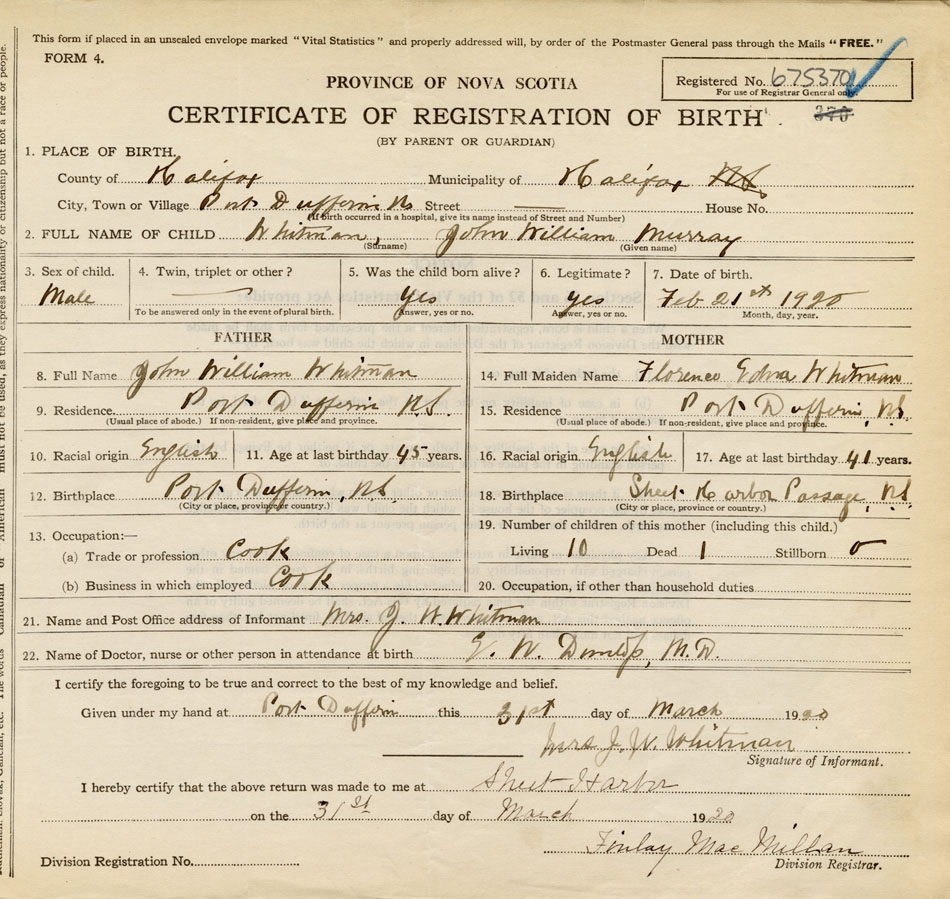 This form if placed in an unsealed envelope marked "Vital Statistics" and properly addressed will, by order of the Postmaster General pass through the Mails "FREE."
FORM 4.
PROVINCE OF NOVA SCOTIA
Registered No. 675370
For use of Registrar General only.
370
CERTIFICATE OF REGISTRATION OF BIRTH
(BY PARENT OR GUARDIAN)
1. PLACE OF BIRTH.
County of Halifax Municipality of Halifax NS
City, Town or Village Port Dufferin NS Street House No.
(If birth occurred in a hospital, give its name instead of Street and Number)
2. FULL NAME OF CHILD Whitman, John William Murray
(Surname) (Given name)
3. Sex of child. 4. Twin, triplet or other? 5. Was the child born alive? 6. Legitimate? 7. Date of birth.
Male Yes Yes Feb 21st 1920
To be answered only in the event of plural birth. Answer, yes or no. Answer, yes or no. Month, day, year.
FATHER MOTHER
8. Full Name John William Whitman 14. Full Maiden Name Florence Edna Whitman
9. Residence. Port Dufferin NS. 15. Residence Port Dufferin, NS
(Usual place of abode.) If non-resident, give place and province. (Usual place of abode.) If non-resident, give place and province.
10. Racial origin English 11. Age at last birthday 45 years. 16. Racial origin English 17. Age at last birthday 41 years.
12. Birthplace Port Dufferin, NS 18. Birthplace Sheet Harbor Passage, NS
(City or place, province or country.) (City or place, province or country.)
13. Occupation:— 19. Number of children of this mother (including this child.)
(a) Trade or profession Cook Living 10 Dead 1 Stillborn 0
(b) Business in which employed Cook 20. Occupation, if other than household duties
21. Name and Post Office address of Informant Mrs. J. W. Whitman
22. Name of Doctor, nurse or other person in attendance at birth W. Dunlop, M.D.
I certify the foregoing to be true and correct to the best of my knowledge and belief.
Given under my hand at Port Dufferin this 31st day of March 1920
Mrs. J. W. Whitman
Signature of Informant.
I hereby certify that the above return was made to me at Sheet Harbor
on the 31st day of March 1920
Finlay MacMillan
Division Registration No. Division Registrar.